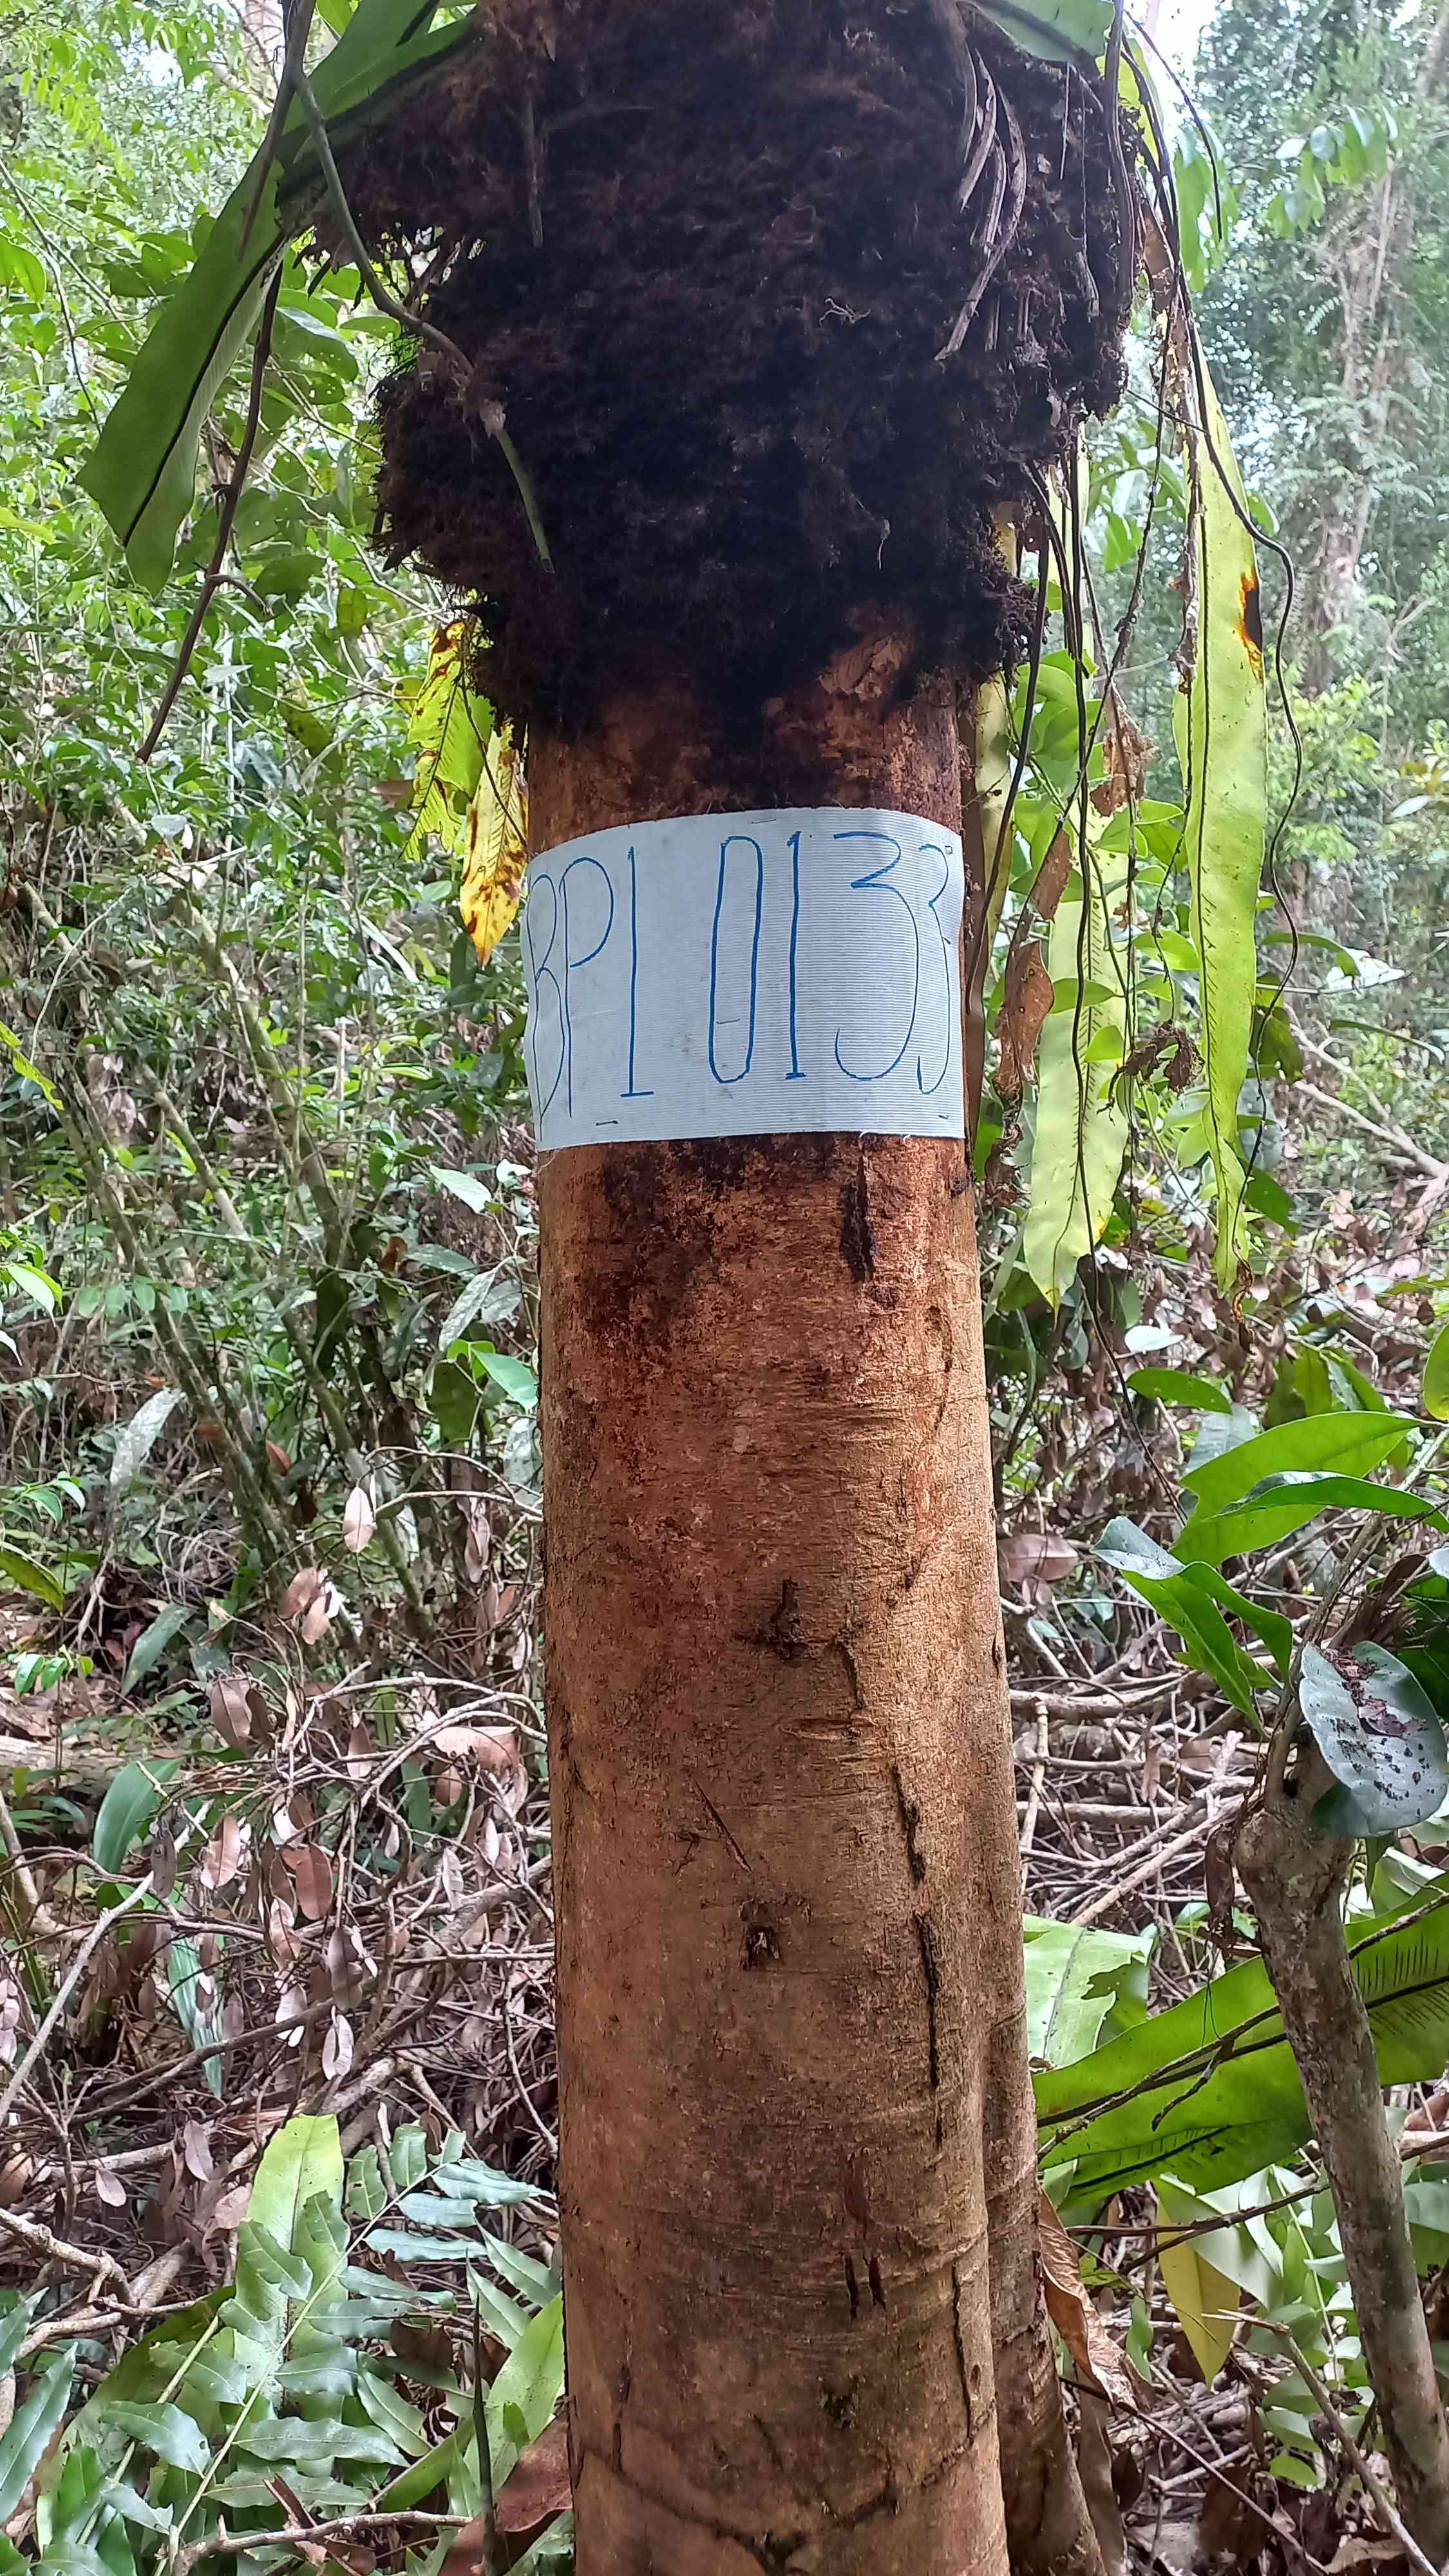 BP1 0133